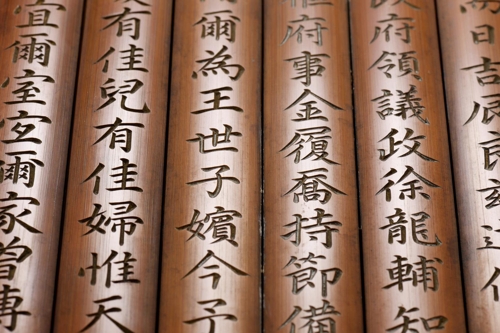 日吉辰良
府領議政徐龍輔知
府事金履喬持節備
爾為王世子嬪今予
有佳兒有佳婦惟天
宜爾室宜爾家